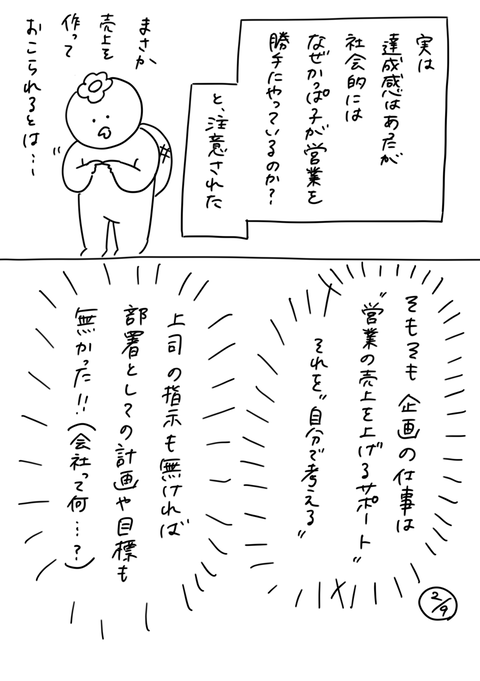 実は
達成感はあったが
社会的には
なぜかっぱ子が営業を
勝手にやっているのか?
と、注意された
まさか
売上を
作って
おこられるとは…
そもそも企画の仕事は
"営業の売上を上げるサポート"
それを"自分で考える"
上司の指示も無ければ
部署としての計画や目標も
無かった!!(会社って何…?)
2/9